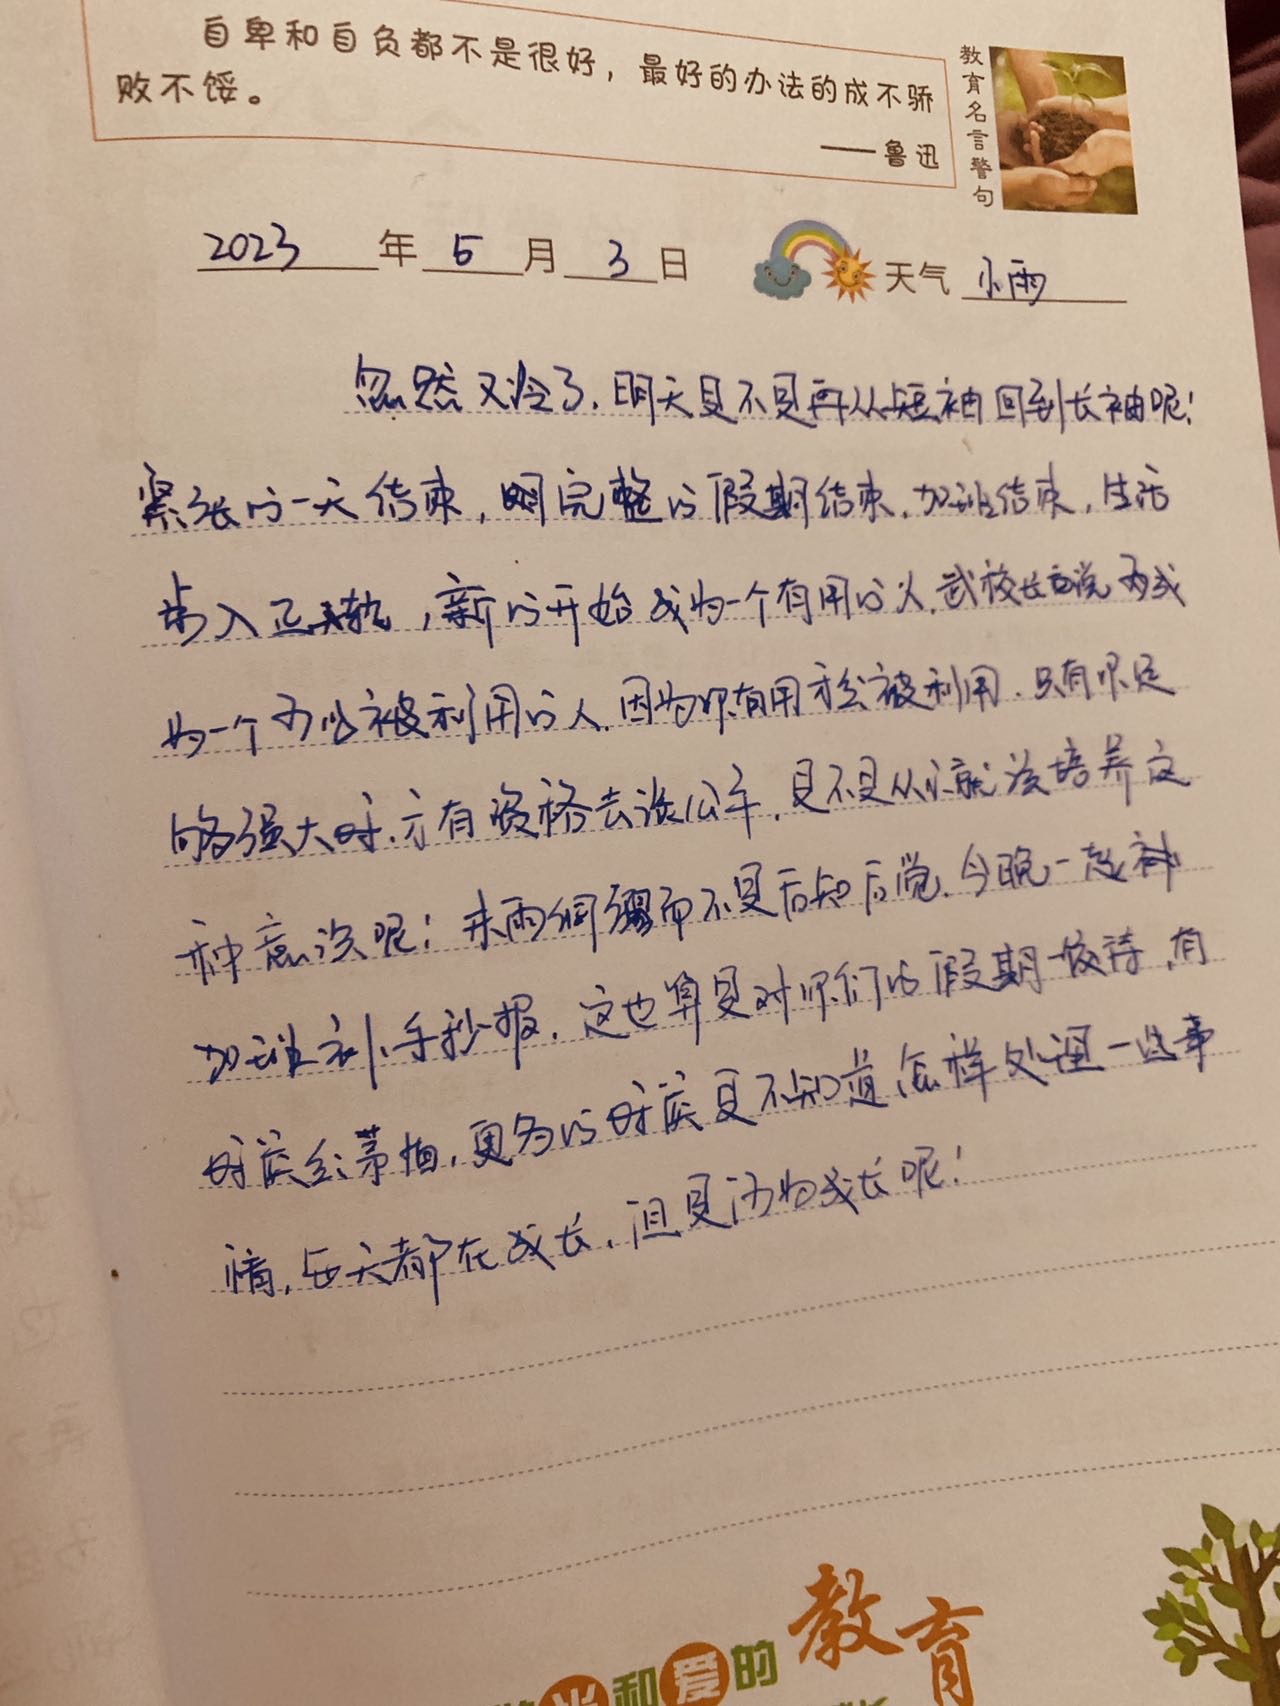 自卑和自负都不是很好，最好的办法的成不骄
败不馁。
——鲁迅
教育名言警句
2023年5月3日 天气 小雨
忽然又冷了，明天是不是再从短袖回到长袖呢！
紧张的一天结束，完整的假期结束，加班结束，生活
步入正轨，新的开始成为一个有用的人，武校长曾说要成
为一个可以被利用的人，因为你有用才会被利用，只有你足
够强大时，才有资格去谈公平，是不是从小就该培养这
种意识呢！未雨绸缪而不是后知后觉，今晚一起
加班补小手抄报，这也算是对你们的假期一成交待，有
时候会矛盾，更多的时候是不知道怎样处理一些事
情，每天都在成长，但是何为成长呢！
和爱的教育